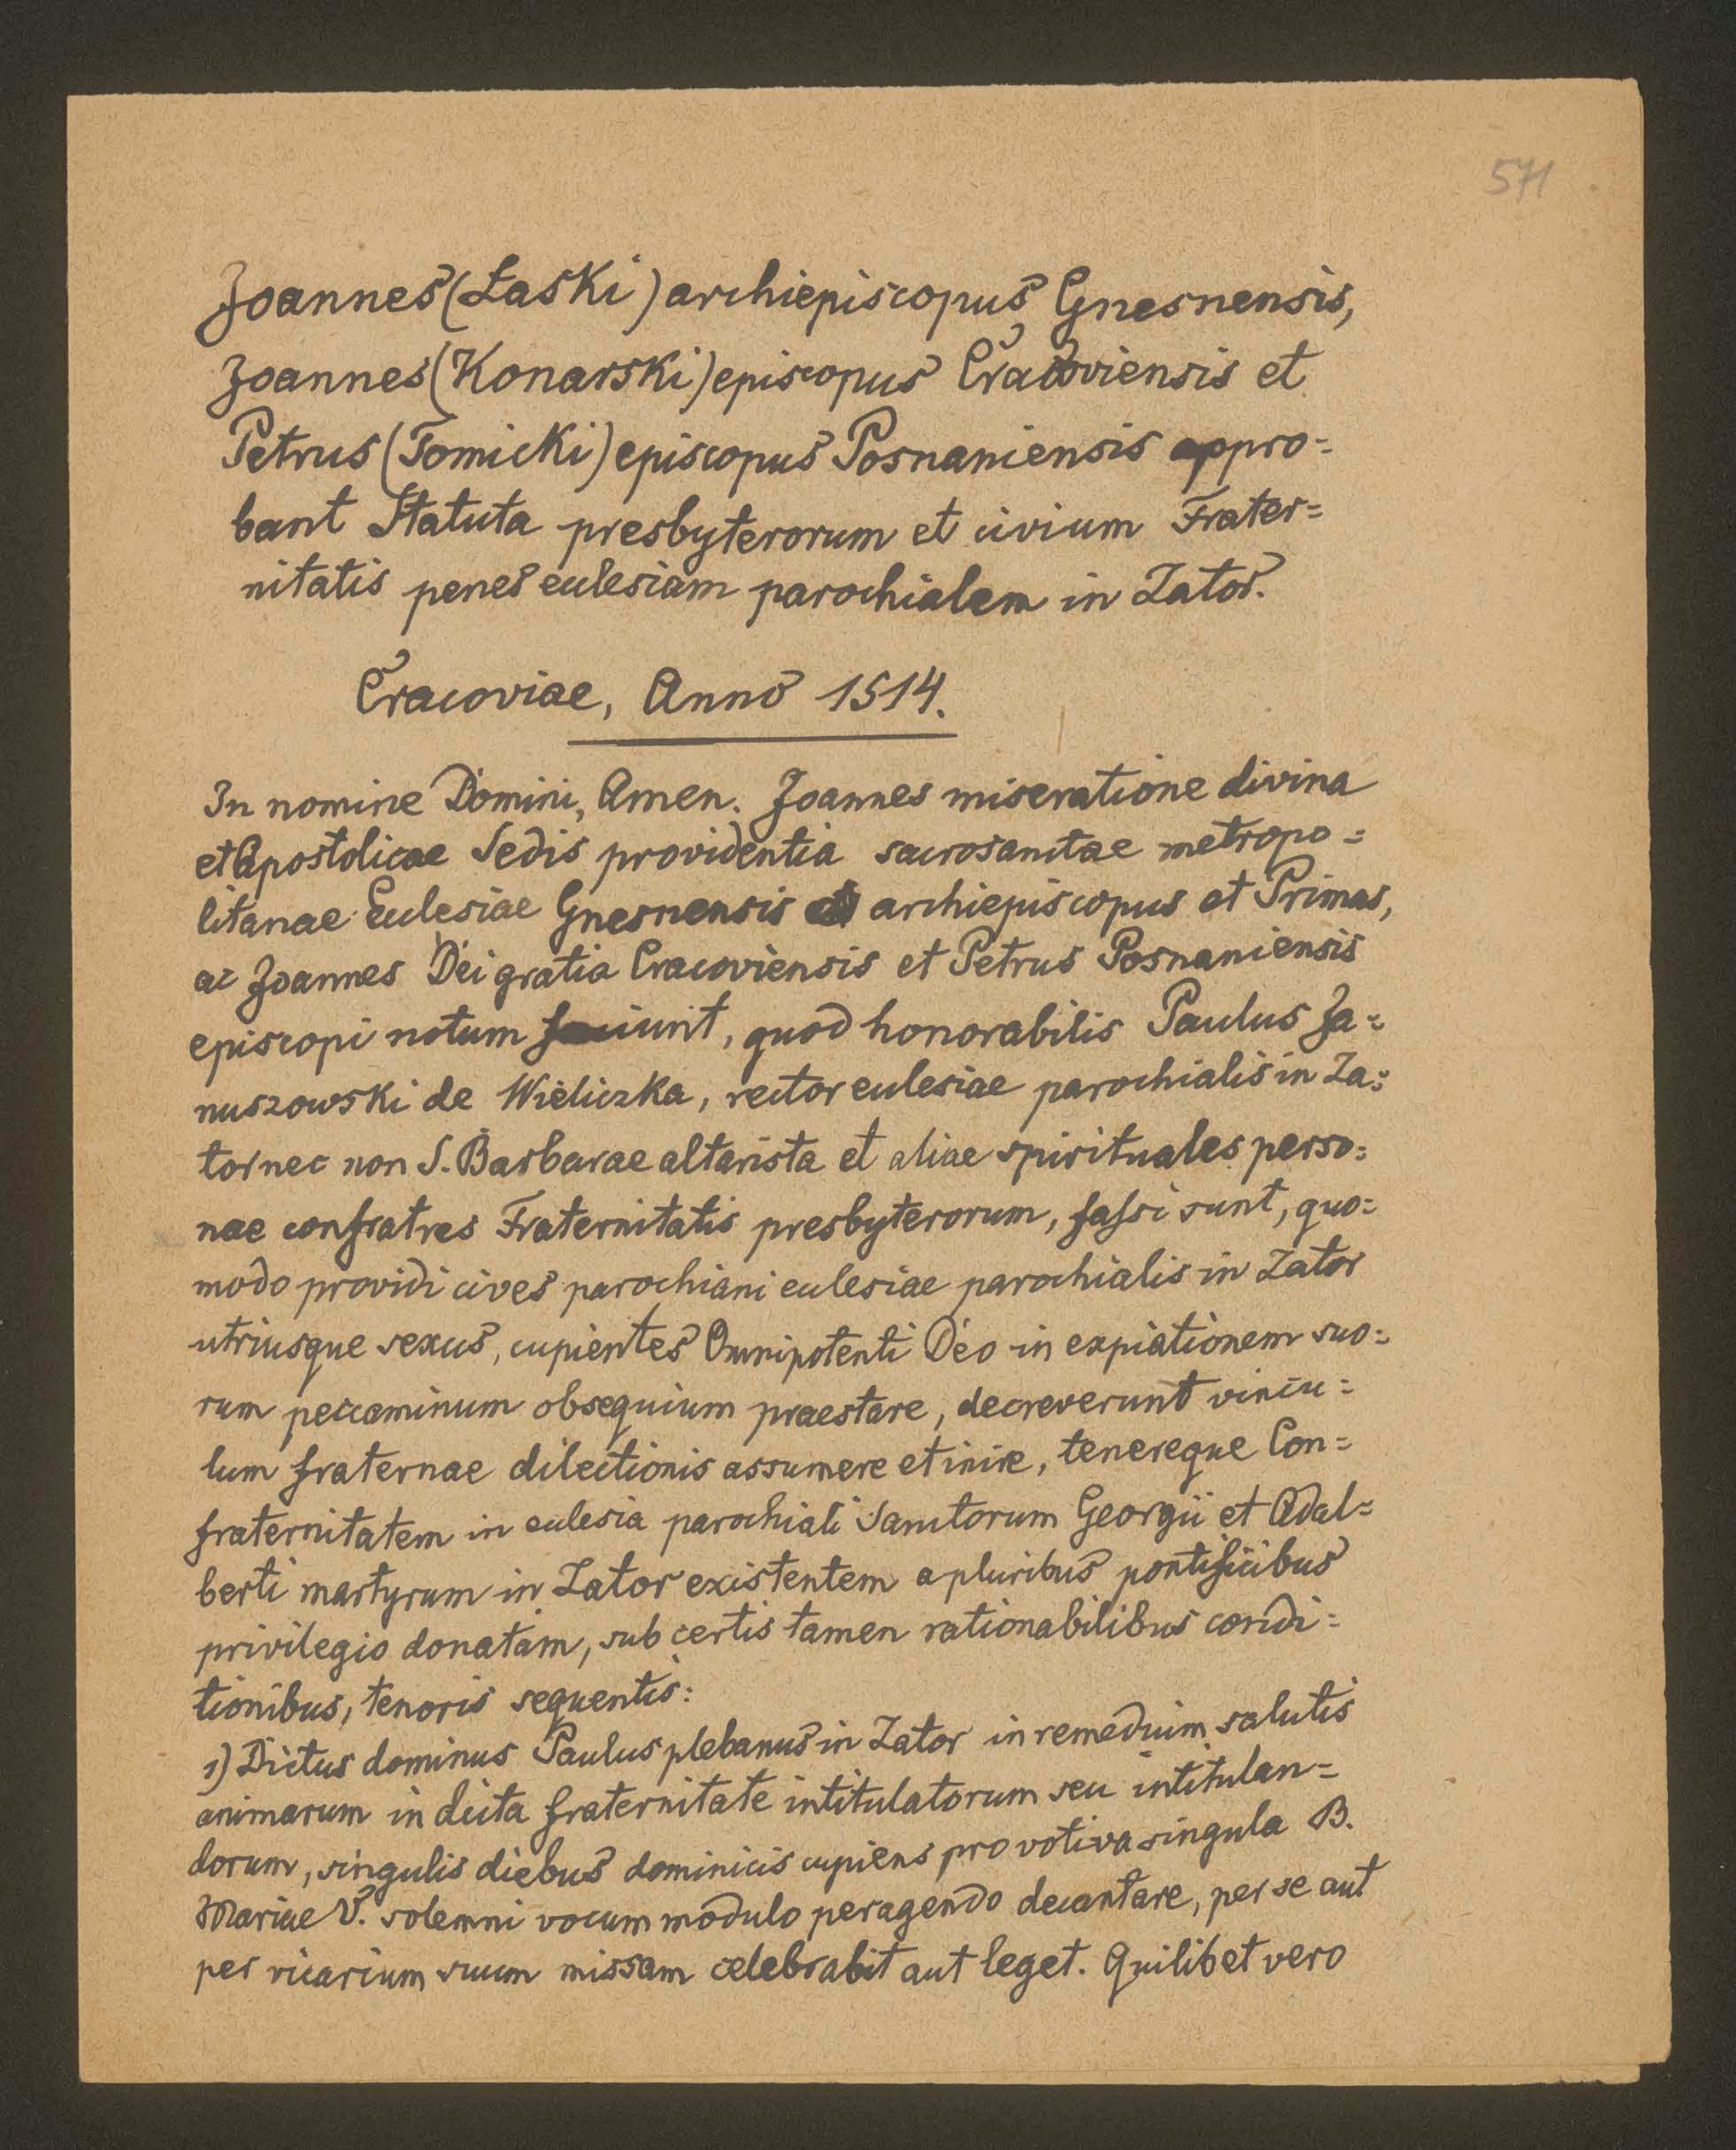 571
Joannes (Łaski) archiepiscopus Gnesnensis,
Joannes (Konarski) episcopus Cracoviensis et
Petrus (Tomicki) episcopus Posnaniensis appro=
bant Statuta presbyterorum et civium Frater=
nitatis penes ecclesiam parochialem in Zator.
Cracoviae, Anno 1514.
In nomine Domini, Amen. Joannes miseratione divina
et Apostolicae Sedis providentia sacrosanctae metropo=
litanae Ecclesiae Gnesnensis archiepiscopus et Primas,
ac Joannes Dei gratia Cracoviensis et Petrus Posnaniensis
episcopi notum faciunt, quod honorabilis Paulus Ja=
nuszowski de Wieliczka, rector ecclesiae parochialis in Za=
tor nec non S. Barbarae altarista et aliae spirituales perso=
nae confratres Fraternitatis presbyterorum, fassi sunt, quo=
modo providi cives parochiani ecclesiae parochialis in Zator
utriusque sexus, cupientes Omnipotenti Deo in expiationem suo=
rum peccaminum obsequium praestare, decreverunt vincu=
lum fraternae dilectionis assumere et inire, tenereque Con=
fraternitatem in ecclesia parochiali Sanctorum Georgii et Adal=
berti martyrum in Zator existentem a pluribus pontificibus
privilegio donatam, sub certis tamen rationabilibus condi=
tionibus, tenoris sequentis:
1) Dictus dominus Paulus plebanus in Zator in remedium salutis
animarum in dicta fraternitate intitulatorum seu intitulan=
dorum, singulis diebus dominicis cupiens pro votiva singula B.
Mariae V. solemni vocum modulo peragendo decantare, per se aut
per vicarium suum missam celebrabit aut leget. Quilibet vero